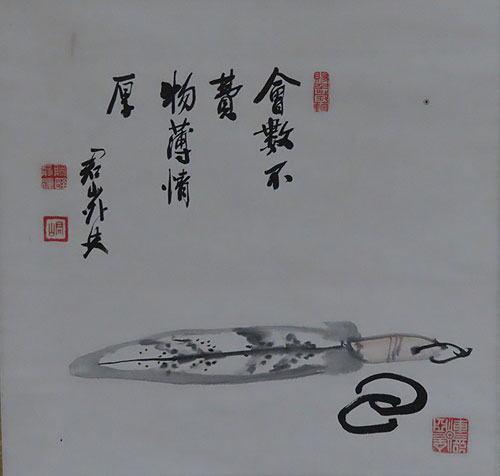 會數不
費
物薄情
厚
君山外史